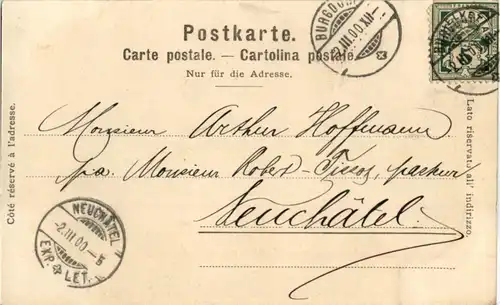 Postkarte.
Carte postale. — Cartolina postale.
Nur für die Adresse.
BURGDORF
2.III.00.XII—
Côté réservé à l'adresse.
Lato riservato all' indirizzo.
Monsieur Arthur Hoffmann
pa. Monsieur Robert-Tissot, pasteur
Neuchâtel.
NEUCHÂTEL
-2.III.00.-5
EXP. LET.